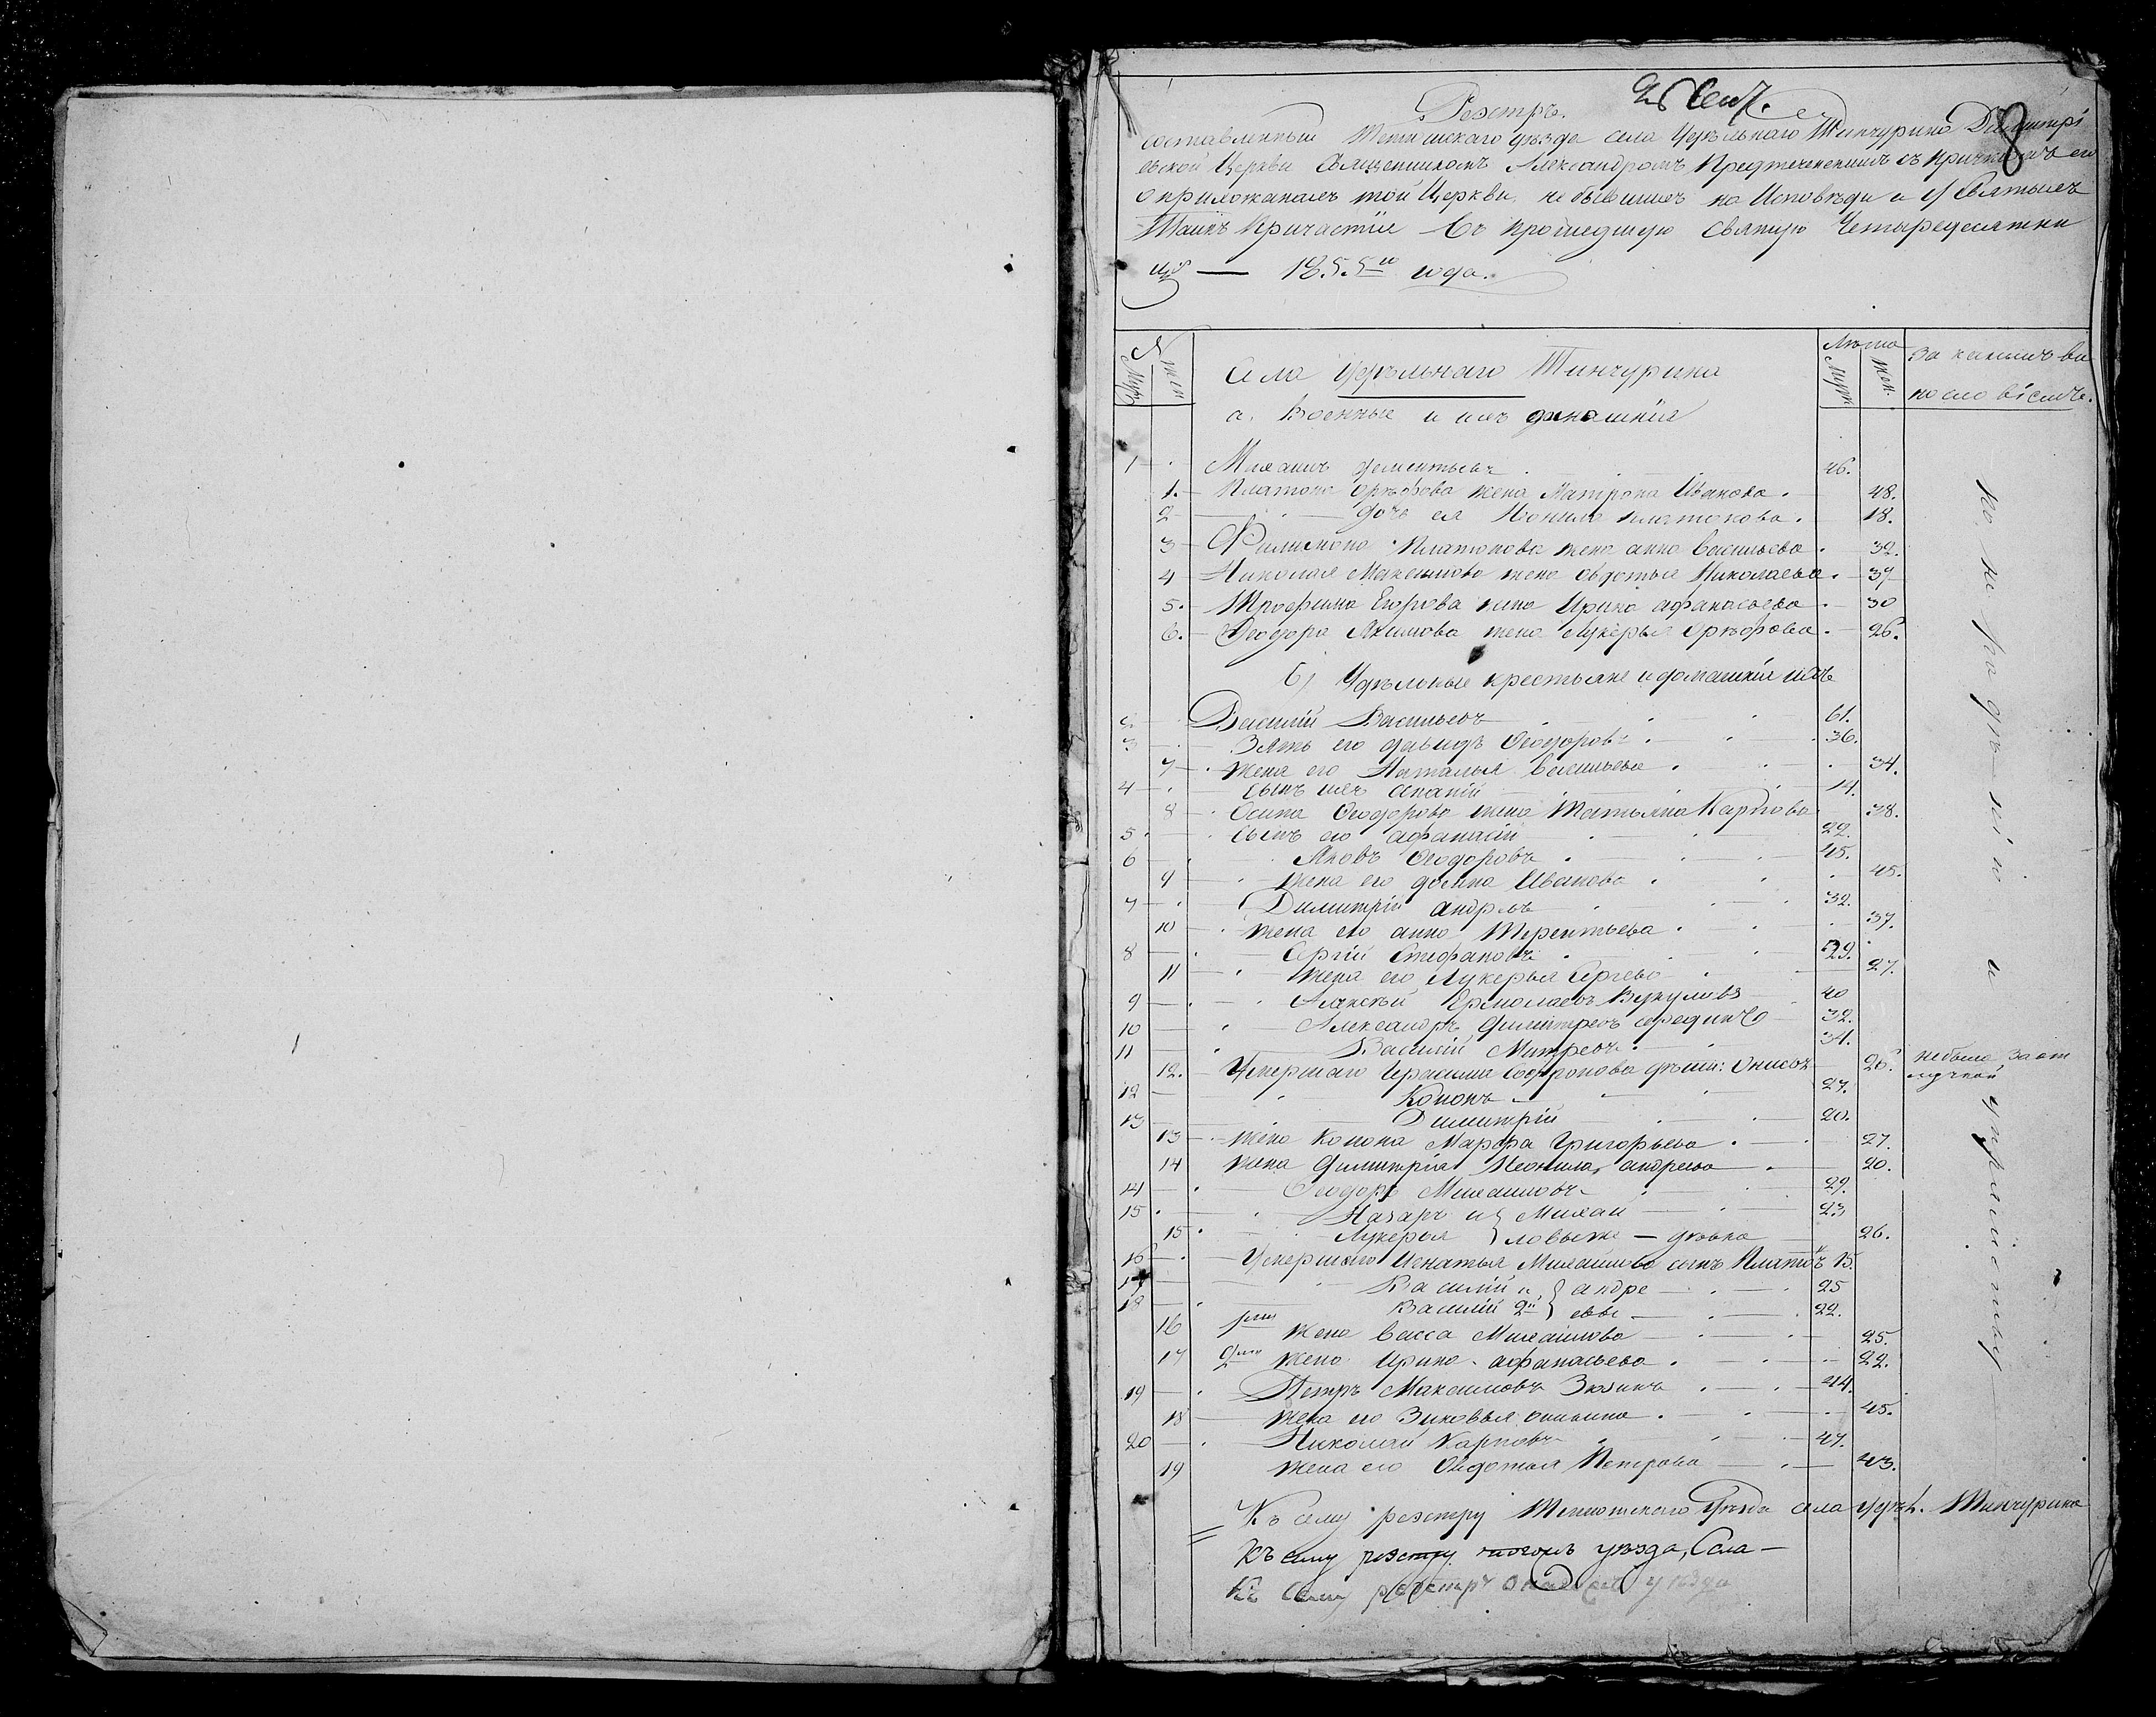 8
Реэстръ.
составленный Тетюшскаго уѣзда села Удѣльнаго Тинчурина Димитрі
евской Церкви Священникомъ Александромъ Предтеченскимъ съ причтомъ его
о прихожанахъ той Церкви, не бывшихъ на Исповѣди и у Святыхъ
Таинъ Причастія въ прошедшую Святую Четыредесятни
цу — 1855го года.
№ Лѣта за какимъ ви
Муж. Жен. Села Удѣльнаго Тинчурина Муж. Жен. но словіемъ.
а. Военные и ихъ домашнія
1 Михаилъ Дементьевъ 46.
1. Платона Ореѳова жена Матрона Иванова. 48.
2 дочь ея Неонила Платонова. 18.
3 Филимона Платонова жена Анна Васильева. 32.
4 Николая Максимова жена Овдотья Николаева. 37
5. Трофима Егорова жена Ирина Афанасьева. 30
6. Ѳеодора Якимова жена Лукерья Ореѳова. 26.
б) Удѣльные крестьяне и домашніе ихъ
2 Василій Васильевъ 61.
3 Зять его Давидъ Ѳеодоровъ 36.
7 жена его Наталья Васильева. 34.
4 сынъ ихъ Ананій 14.
8 Осипа Ѳеодорова жена Татьяна Карпова 38.
5 сынъ его Афанасій 22.
6 Яковъ Ѳеодоровъ 45.
9 жена его Домна Иванова 45.
7 Димитрій Андреевъ 32.
10 жена его Анна Терентьева. 37.
8 Сергій Стефановъ 29.
11 жена его Лукерья Сергѣева 27.
9 Алексѣй Ермолаевъ Викуловъ 40
10 Александръ Димитревъ 32.
11 Василій Митревъ. 34.
12. Умершаго Герасима Софронова дѣти: 26. небыла за от
лучкой
12 Кононъ 27.
13 Димитрій 20.
13 жена Конона Марфа Григорьева. 27.
14 жена Димитрія Неонила Андреева 20.
14 Ѳеодоръ Михаиловъ 29.
15 Назаръ и } Михаи 23
15 Лукерья } ловы же — дѣвка 26.
16 Умершаго Игнатья Михаилова сынъ Платонъ 15.
17 Василій и } Андре 25
18 Василій 2й } евы 22.
16 жена Васса Михаилова 25.
17 жена Ирина Афанасьева. 22.
19 Петръ Максимовъ Зюзинъ 44.
18 жена его Зиновья 45.
20 Николай Карповъ 47.
19 жена его Овдотья Петрова 43.
по нерадѣнію и упрямству
Къ сему реэстру Тетюшскаго Уѣзда села Удѣл. Тинчурина
Къ сему реэстру уѣзда, Села —
Къ сему реэстръ уѣзда